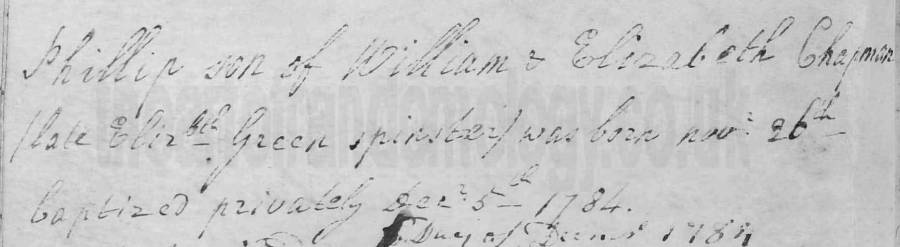 Phillip son of William & Elizabeth Chapman
(late Eliz:bth Green spinster) was born novr 26th
baptized privately Decr 5th 1784.
1784